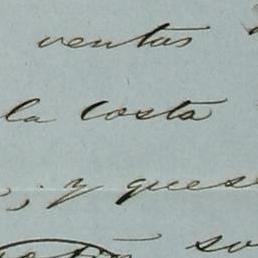 ventas
la costa
, y ques
so